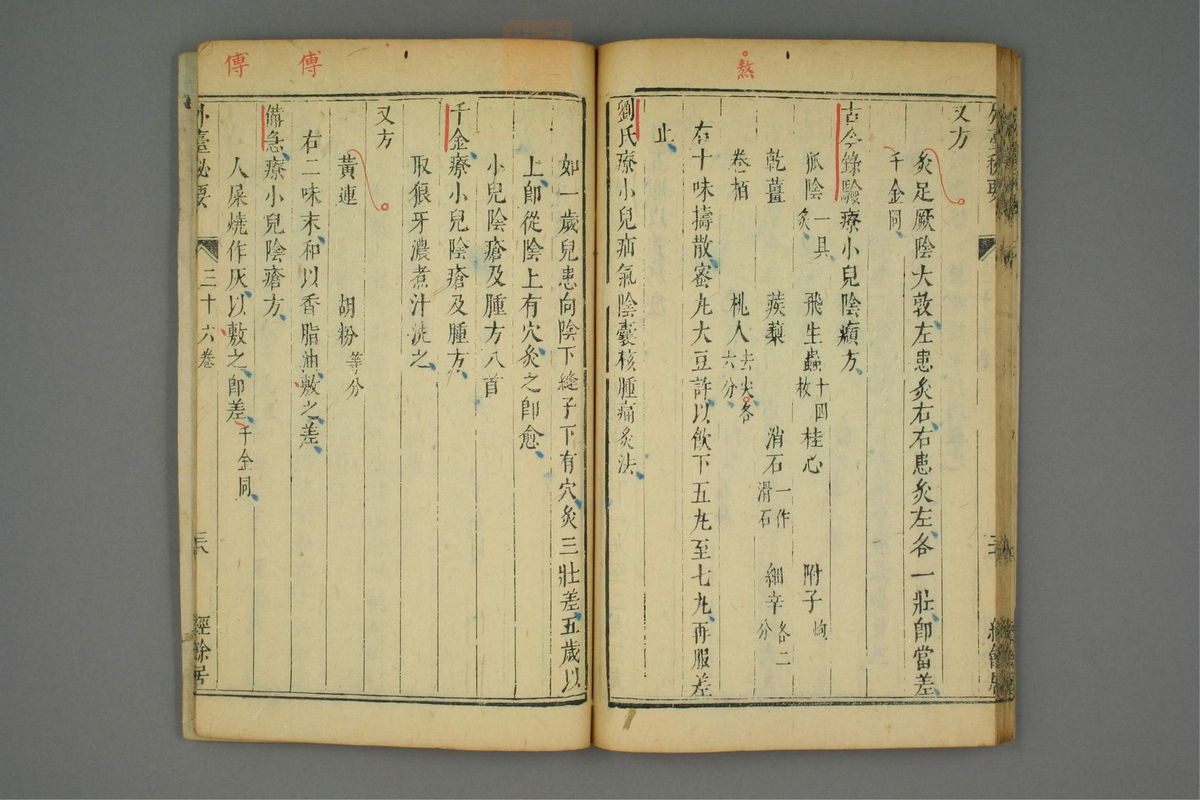 熬
又方
灸足厥陰大敦左患灸右右患灸左各一壯卽當差
千金同
古今錄驗療小兒陰㿗方
狐陰一具灸 飛生蟲十四枚 桂心 附子炮
乾薑 蒺藜 消石一作滑石 細辛各二分
卷栢 桃人去尖各六分
右十味擣散蜜丸大豆許以飲下五丸至七丸再服差
止
劉氏療小兒疝氣陰囊核腫痛灸法
傅
傅
如一歲兒患向陰下縫子下有穴灸三壯差五歲以
上卽從陰上有穴灸之卽愈
小兒陰瘡及腫方八首
千金療小兒陰瘡及腫方
取狼牙濃煮汁洗之
又方
黃連 胡粉等分
右二味末和以香脂油敷之差
備急療小兒陰瘡方
人屎燒作灰以敷之卽差千金同
外臺秘要 三十六卷 經餘居